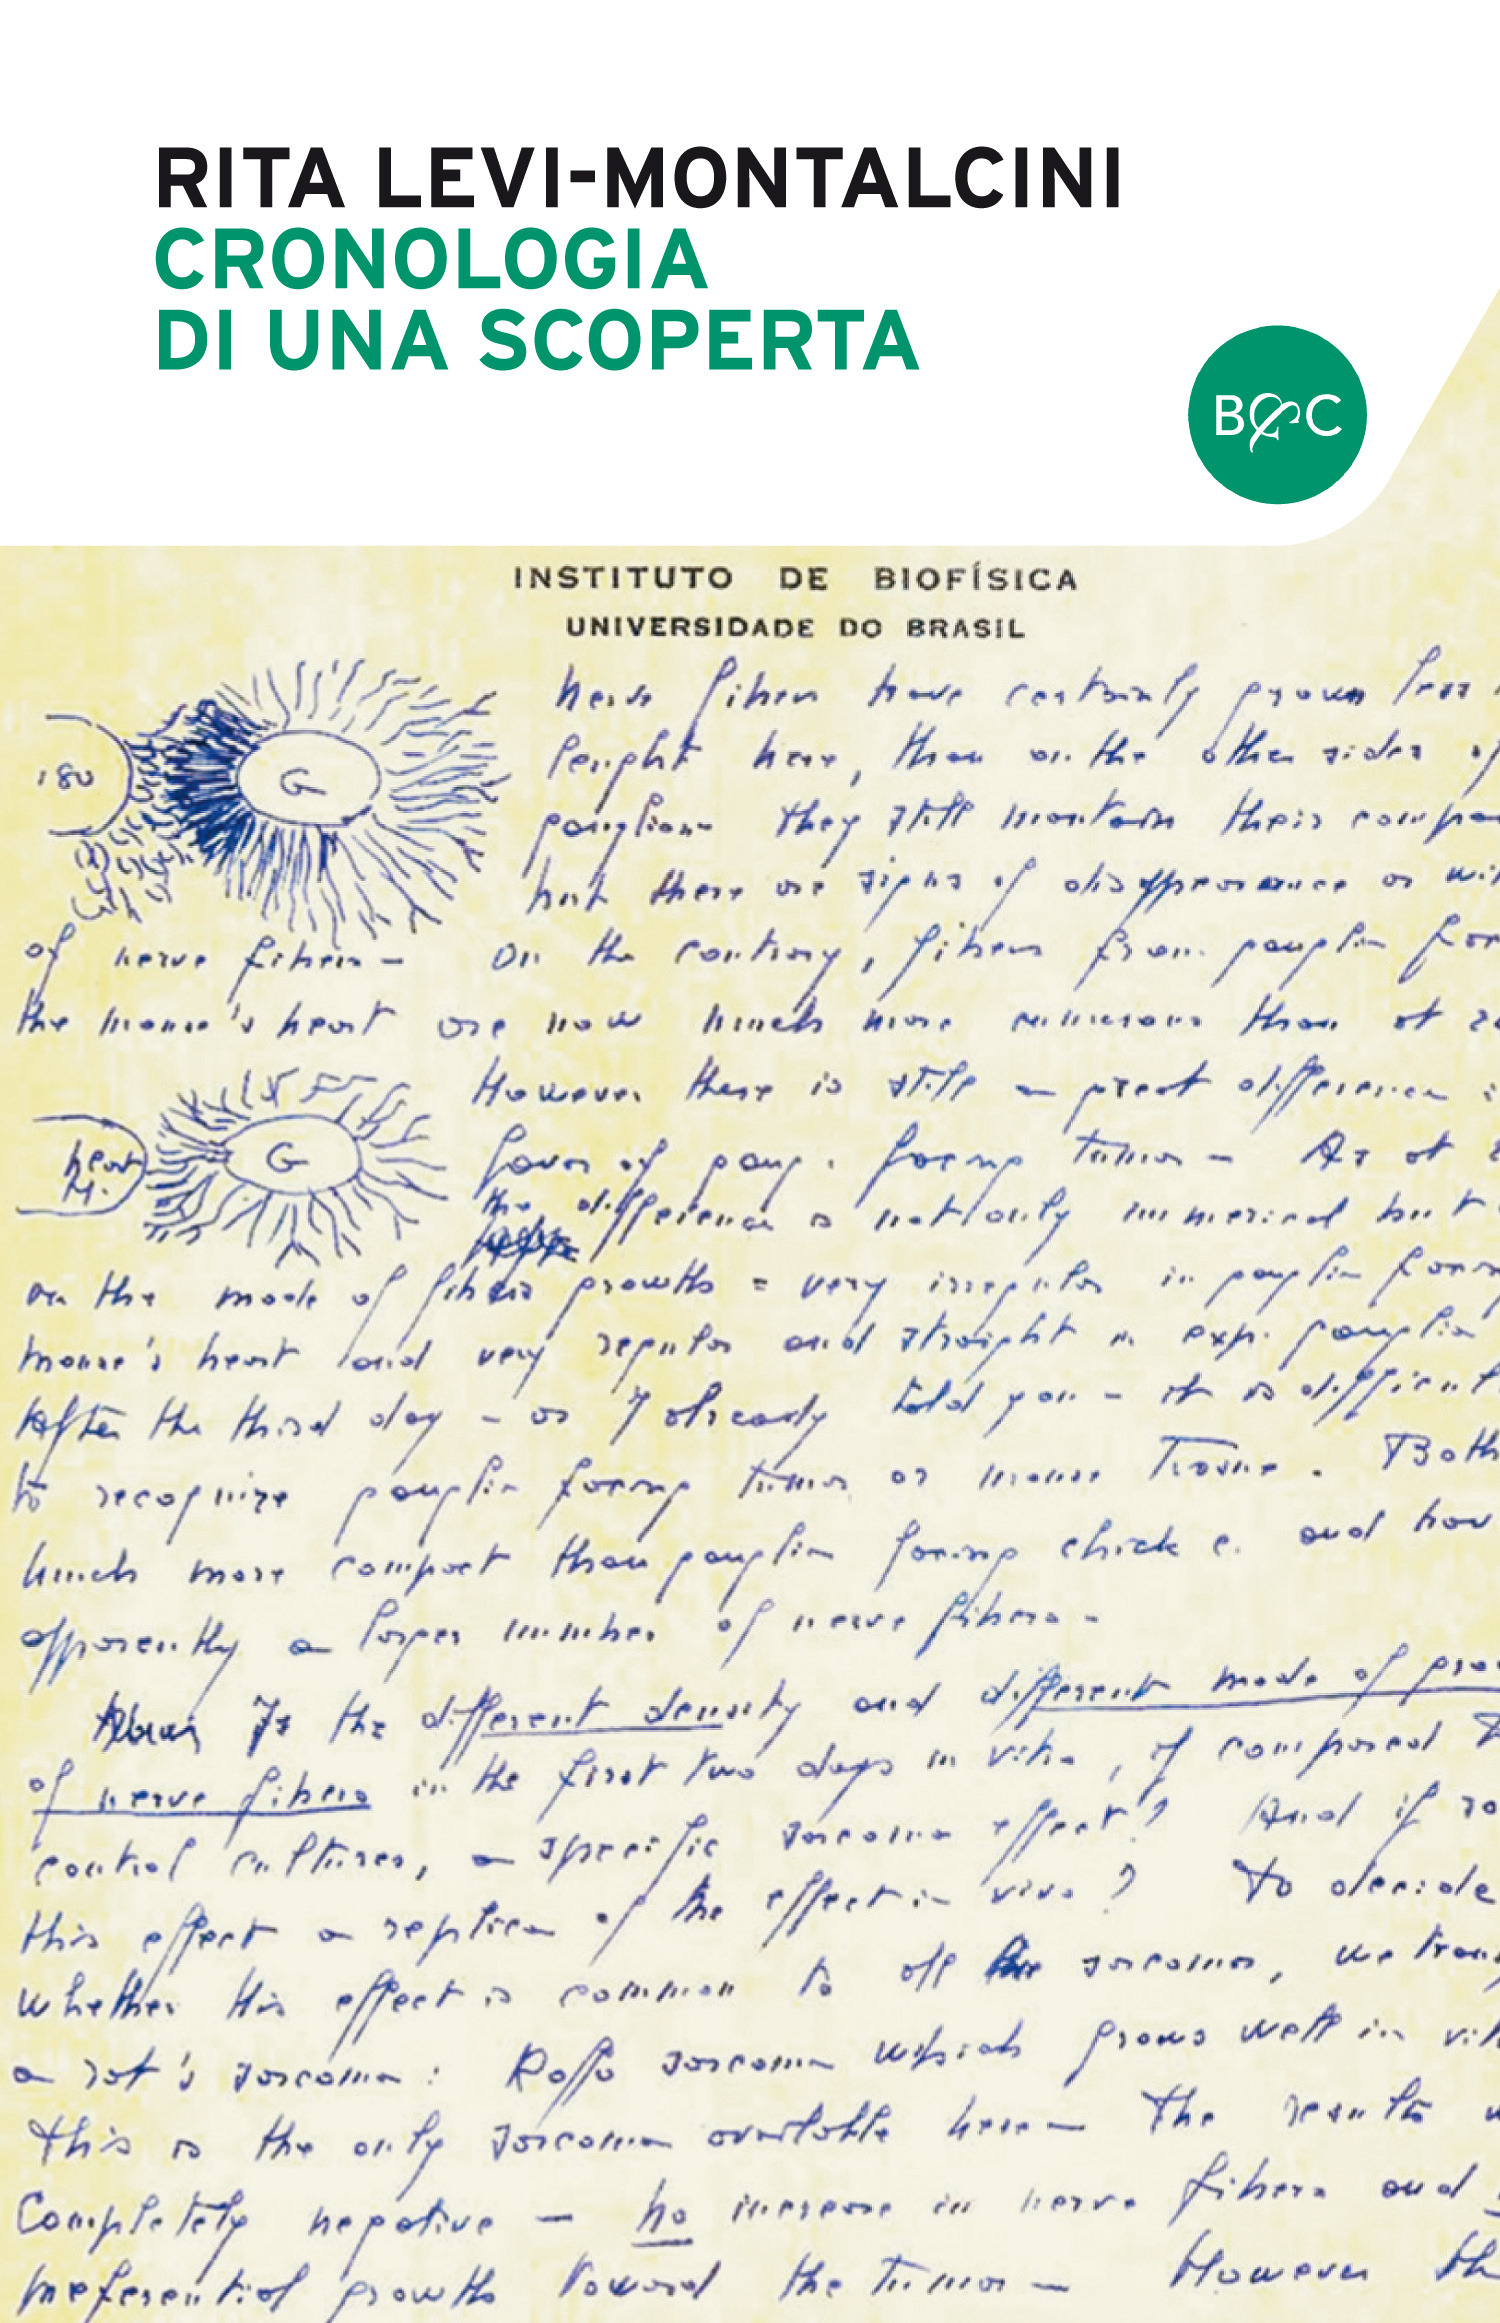 RITA LEVI-MONTALCINI
CRONOLOGIA
DI UNA SCOPERTA
B&C
INSTITUTO DE BIOFÍSICA
UNIVERSIDADE DO BRASIL
nerve fibers have certainly grown less
180
G
lenght here, than on the other sides of
ganglion. they still mantain their compa
but there are signs of disappearance or wi
of nerve fibers - On the contrary, fibers from ganglia
the mouse's heart are now much more numerous than at
However there is still a great difference
heart
M.
G
favor of gang. facing tumor - As at
the difference is not only numerical but
on the mode of fibers growth = very irregular in ganglia facing
mouse's heart and very regular and straight in exp. ganglia
After the third day - as I already told you - it is difficult
to recognize ganglia facing tumor or mouse tissue. Both
much more compact than ganglia facing chick e. and hav
apparently a larger number of nerve fibers -
Is the different density and different mode of grow
of nerve fibers in the first two days in vitro, if compared
control cultures, a specific sarcoma effect? And if so
this effect a replica of the effect in vivo? To decide
whether this effect is common to all sarcomas, we tran
a rat's sarcoma: Roffo sarcoma which grows well in vit
This is the only sarcoma available here - The results w
Completely negative - no increase in nerve fibers and
preferential growth toward the tumor - However th